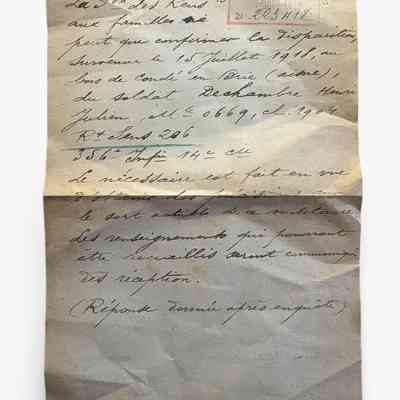 La des Rens
aux familles ne
peut que confirmer la disparition,
survenue le 15 Juillet 1918, au
bois de Condé en Brie (Aisne),
du soldat Deschambre Henri
Julien, Mle 0669, cl. 1904
Rt Sens 206
356e Infie 14e Cie
Le nécessaire est fait en vue
d'obtenir des
le sort de ce militaire
Les renseignements qui pourront
être recueillis seront
dès réception.
(Réponse donnée après enquête)